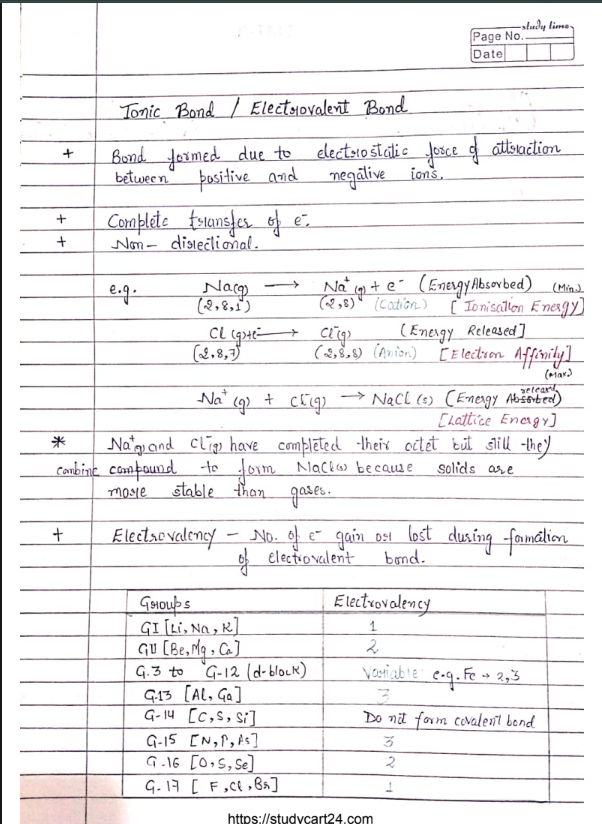 study time
Page No.
Date
Ionic Bond / Electrovalent Bond
+ Bond formed due to electrostatic force of attraction
between positive and negative ions.
+ Complete transfer of e⁻.
+ Non-directional.
e.g. Na(g) → Na⁺(g) + e⁻ (Energy Absorbed) (Min.)
(2,8,1) (2,8) (Cation) [Ionisation Energy]
Cl(g)+e⁻ → Cl⁻(g) (Energy Released]
(2,8,7) (2,8,8) (Anion) [Electron Affinity]
(Max)
Na⁺(g) + Cl⁻(g) → NaCl(s) (Energy Absorbed) released
[Lattice Energy]
* Na⁺(g) and Cl⁻(g) have completed their octet but still they
combine compound to form NaCl(s) because solids are
more stable than gases.
+ Electrovalency - No. of e⁻ gain or lost during formation
of electrovalent bond.
Groups Electrovalency
GI [Li, Na, K] 1
GII [Be, Mg, Ca] 2
G.3 to G-12 (d-block) Variable e.g. Fe → 2,3
G-13 [Al, Ga] 3
G-14 [C, S, Si] Do not form covalent bond
G-15 [N, P, As] 3
G-16 [O, S, Se] 2
G-17 [F, Cl, Br] 1
https://studycart24.com